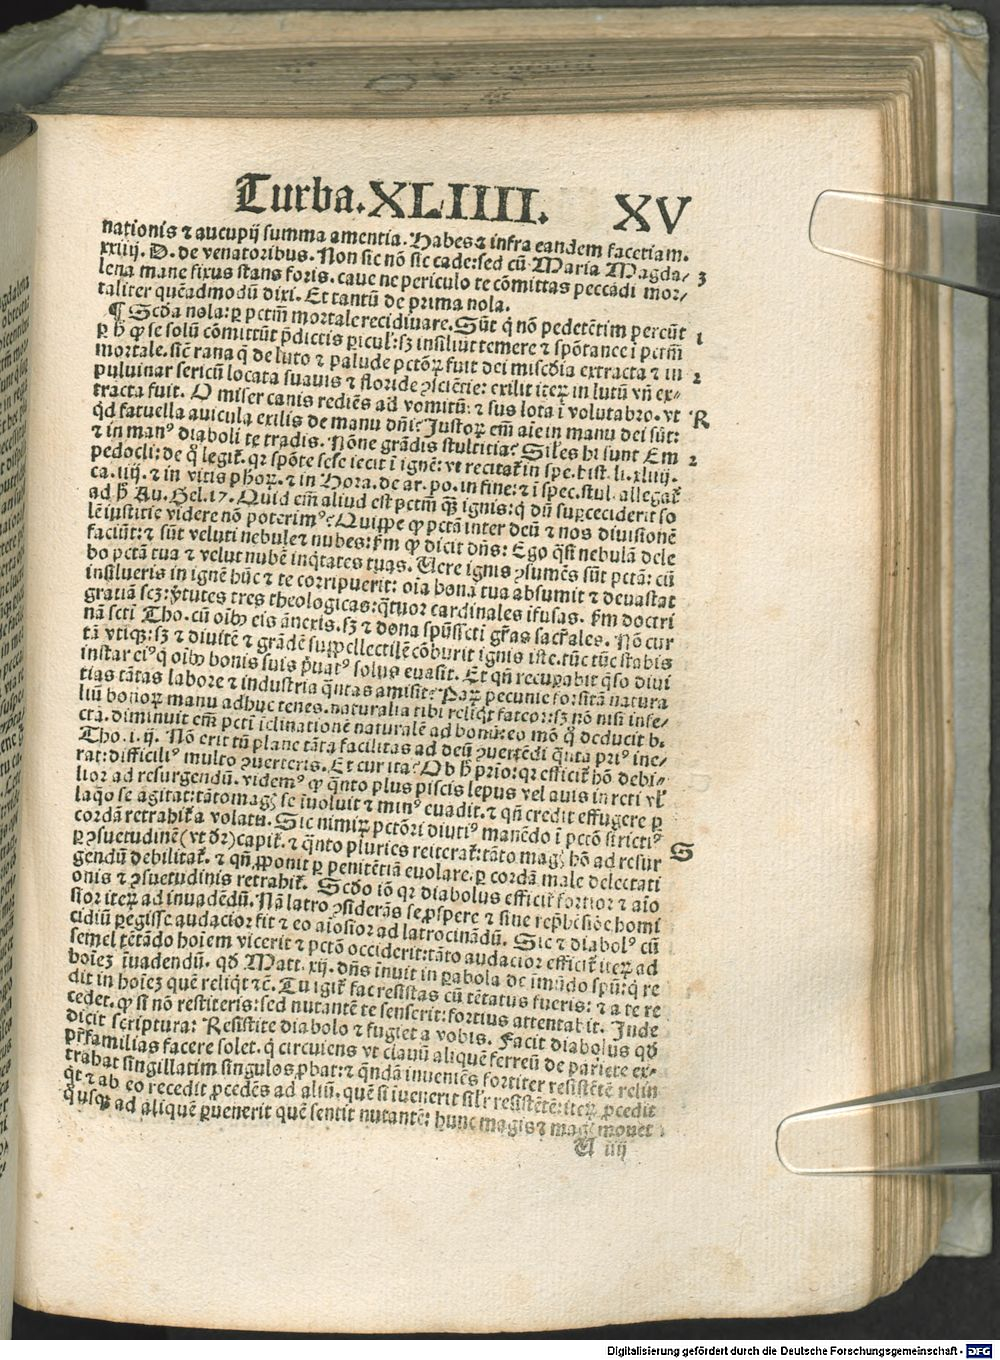 Turba. XLIIII. XV
nationis ⁊ aucupij summa amentia. Habes ⁊ infra eandem facetiam.
xxiiij. D. de venatoribus. Non sic nō sic cade: sed cū Maria Magda⸗
lena mane fixus stans foris. caue ne periculo te cōmittas peccādi mor⸗ 3
taliter quēadmodū dixi. Et tantū de prima nola.
¶ Scďa nola: ꝑ pctm̄ mortale recidiuare. Sūt q̇ nō pedetētim pereūt
ꝑ hͦ ꝙ se solū cōmittūt p̄dictis ꝑicul᷒: sꝫ insiliūt temere ⁊ spōtanee ī pctm̄ 1
mortale. sicē rana q̄ de luto ⁊ palude pctōꝝ fuit dei mīscďia extracta ⁊ in
puluinar sericū locata suauis ⁊ floride ꝯsciētie: exilit iteꝝ in lutū vn̄ ex⸗ 2
tracta fuit. O miser canis rediēs ad vomitū: ⁊ sus lota ī volutabro. vt
qͥd fatuella auicula exilis de manu dn̄i? Justoꝝ em̄ aīe in manu dei sūt: R
⁊ in manꝰ diaboli te tradis. Nōne grādis stultitia? Siles hi sunt Em
pedocli: de q̊ legit᷑. qꝛ spōte sese iecit ī ignē: vt recitat᷑ in spe. hist. li. xliiij. 2
ca. iiij. ⁊ in vitis phoꝝ. ⁊ in Hora. de ar. po. in fine: ⁊ ī spec. stul. allegat᷑
ad hͦ Au. Gel. 17. Quid em̄ aliud est pctm̄ qꝫ ignis: q̇ dū suꝑceciderit so
lē iustitie videre nō poterimꝰ? Quippe ꝙ pctā inter deū ⁊ nos diuisionē
faciūt: ⁊ sūt veluti nebule ⁊ nubes: ẜm ꝙ dicit dn̄s: Ego q̄si nebulā dele
bo pctā tua ⁊ velut nubē inq̇tates tuas. Vere ignis ꝯsumēs sūt pctā: cū
insilueris in ignē hūc ⁊ te corripuerit: oīa bona tua absumit ⁊ deuastat
gratiā scꝫ: v̓tutes tres theologicas: q̄tuor cardinales īfusas. ẜm doctri
nā scti Tho. cū oībꝰ eis ānexis. sꝫ ⁊ dona spūssctī gr̄as sacr̄ales. Nō cur
tā vtiqꝫ: sꝫ ⁊ diuitē ⁊ grādē suppellectilē cōburit ignis iste. tūc tūc stabis
instar ciꝰ q̇ oībꝰ bonis suis p̄uatꝰ solus euasit. Et qn̄ recuꝑabit q̄so diui
tias tātas labore ⁊ industria q̄ntas amisit? Paꝝ pecunie forsitā natura
liū bonoꝝ manu adhuc tenes. naturalia tibi reliq̇t fateor: sꝫ nō nisi infe⸗
cta. diminuit em̄ pctī īclinationē naturalē ad bonū: eo mō q̊ deducit b.
Tho. i. ij. Nō erit tū plane tāta facilitas ad deū ꝯuertēdi q̄nta priꝰ ine⸗
rat: difficiliꝰ multo ꝯuerteris. Et cur ita? Ob hͦ prīo: qꝛ efficit᷑ hō debi⸗
lior ad resurgendū. videmꝰ ꝙ q̄nto plus piscis lepus vel auis in reti vl᷑
laq̊o se agitat: tātomagꝭ se īuoluit ⁊ minꝰ euadit. ⁊ qn̄ credit effugere ꝑ
cordā retrahit᷑ a volatu. Sic nimiꝝ pctōri diutiꝰ manēdo ī pctō strictiꝰ
ꝑ ꝯsuetudinē (vt ďr) capit᷑. ⁊ q̄nto pluries reiterat᷑: tāto magꝭ hō ad resur S
gendū debilitat᷑. ⁊ qn̄ ꝓponit ꝑ penitētiā euolare. ꝑ cordā male delectati
onis ⁊ ꝯsuetudinis retrahit᷑. Scďo iō qꝛ diabolus efficit᷑ fortior ⁊ aīo
sior iteꝝ ad inuadēdū. Nā latro ꝯsiderās se ꝓspere ⁊ sine rep̄hēsiōe homi
cidiū ꝑegisse audacior fit ⁊ eo aīosior ad latrocinādū. Sic ⁊ diabolꝰ cū
semel tētādo hoīem vicerit ⁊ pctō occiderit: tāto audacior efficit᷑ iteꝝ ad
hoīeꝫ īuadendū. qď Matt. xij. dn̄s īnuit in ꝑabola de īmūdo spū: q̇ re
dit in hoīeꝫ quē reliq̇t ⁊cͣ. Tu igit᷑ fac resistas cū tētatus fueris: ⁊ a te re
cedet. ꝙ si nō restiteris: sed nutantē te senserit: fortius attentabit. Inde
dicit scriptura: Resistite diabolo ⁊ fugiet a vobis. Facit diabolus qď
pr̄familias facere solet. q̇ circuiens vt clauū aliquē ferreū de pariete ex⸗
trahat singillatim singulos ꝓbat: ⁊ q̄ndā inueniēs fortiter resistētē relin
q̇t ⁊ ab eo recedit ꝓcedēs ad aliū. quē si īuenerit sil᷑r resistētē: iteꝝ ꝓcedit
q̊usqꝫ ad aliquē ꝑuenerit quē sentit nutantē: hunc magis ⁊ magꝭ mouet
A iiij
Digitalisierung gefördert durch die Deutsche Forschungsgemeinschaft - DFG